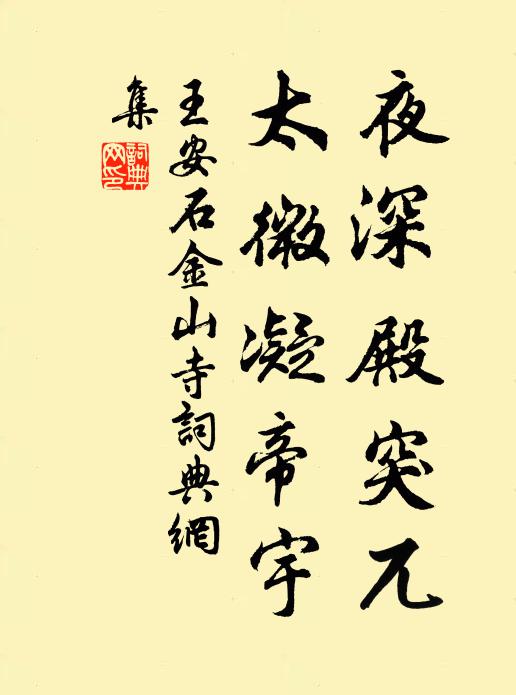 夜深殿突兀
太微凝帝宇
王安石金山寺詞典網
集
詞典
網印